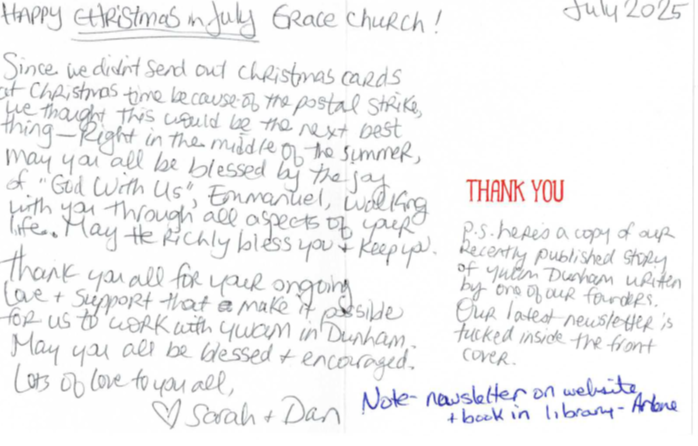 HAPPY CHRISTMAS in JULY GRACE CHURCH!
July 2025
Since we didn't send out christmas cards
at Christmas time because of the postal strike,
we thought this would be the next best
thing – Right in the middle of the summer,
may you all be blessed by the joy
of "God With Us", Emmanuel, walking
with you through all aspects of your
life. May He Richly bless you + keep you.
Thank you all for your ongoing
Love + Support that make it possible
for us to work with ywam in Dunham.
May you all be blessed + encouraged.
Lots of love to you all,
♡ Sarah + Dan
THANK YOU
P.S. here's a copy of our
Recently published story
of ywam Dunham written
by one of our founders.
Our latest newsletter is
tucked inside the front
cover.
Note- newsletter on website
+ book in library - Arlene